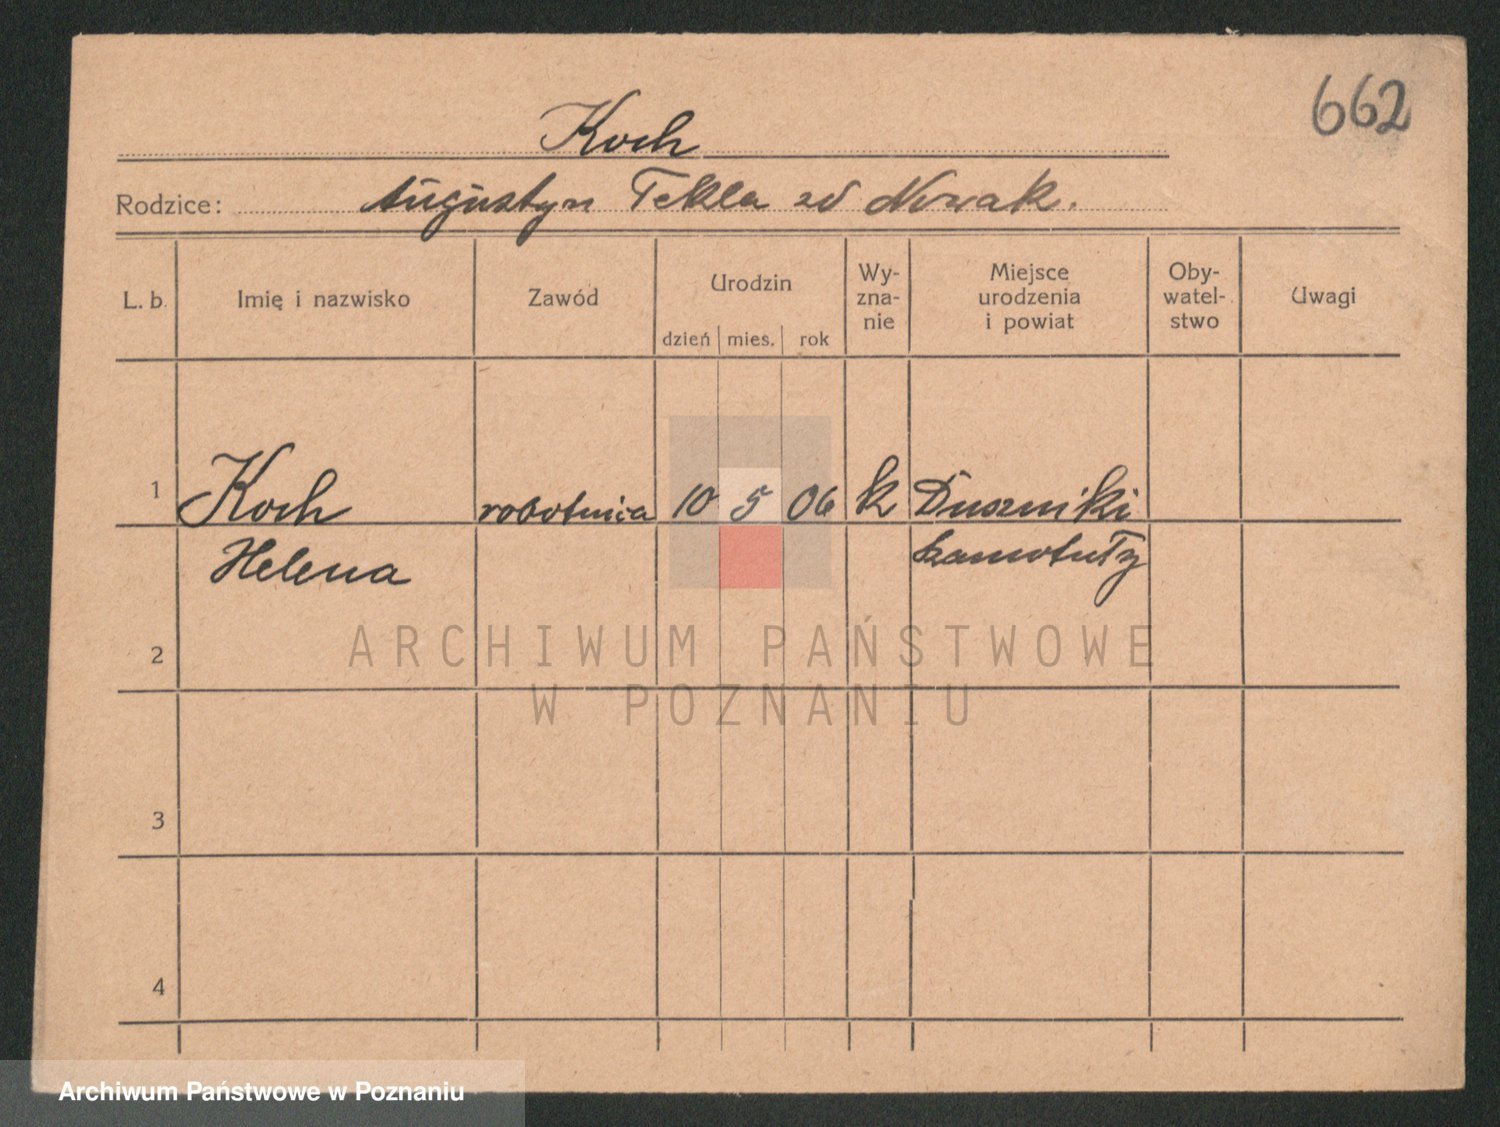 662
Koch
Rodzice: Augustyn Tekla zd Nowak.
L. b. Imię i nazwisko Zawód Urodzin Wy-zna-nie Miejsce urodzenia i powiat Oby-watel-stwo Uwagi
dzień mies. rok
1 Koch robotnica 10 5 06 k Duszniki
Helena Szamotuły
2
ARCHIWUM PAŃSTWOWE
W POZNANIU
3
4
Archiwum Państwowe w Poznaniu